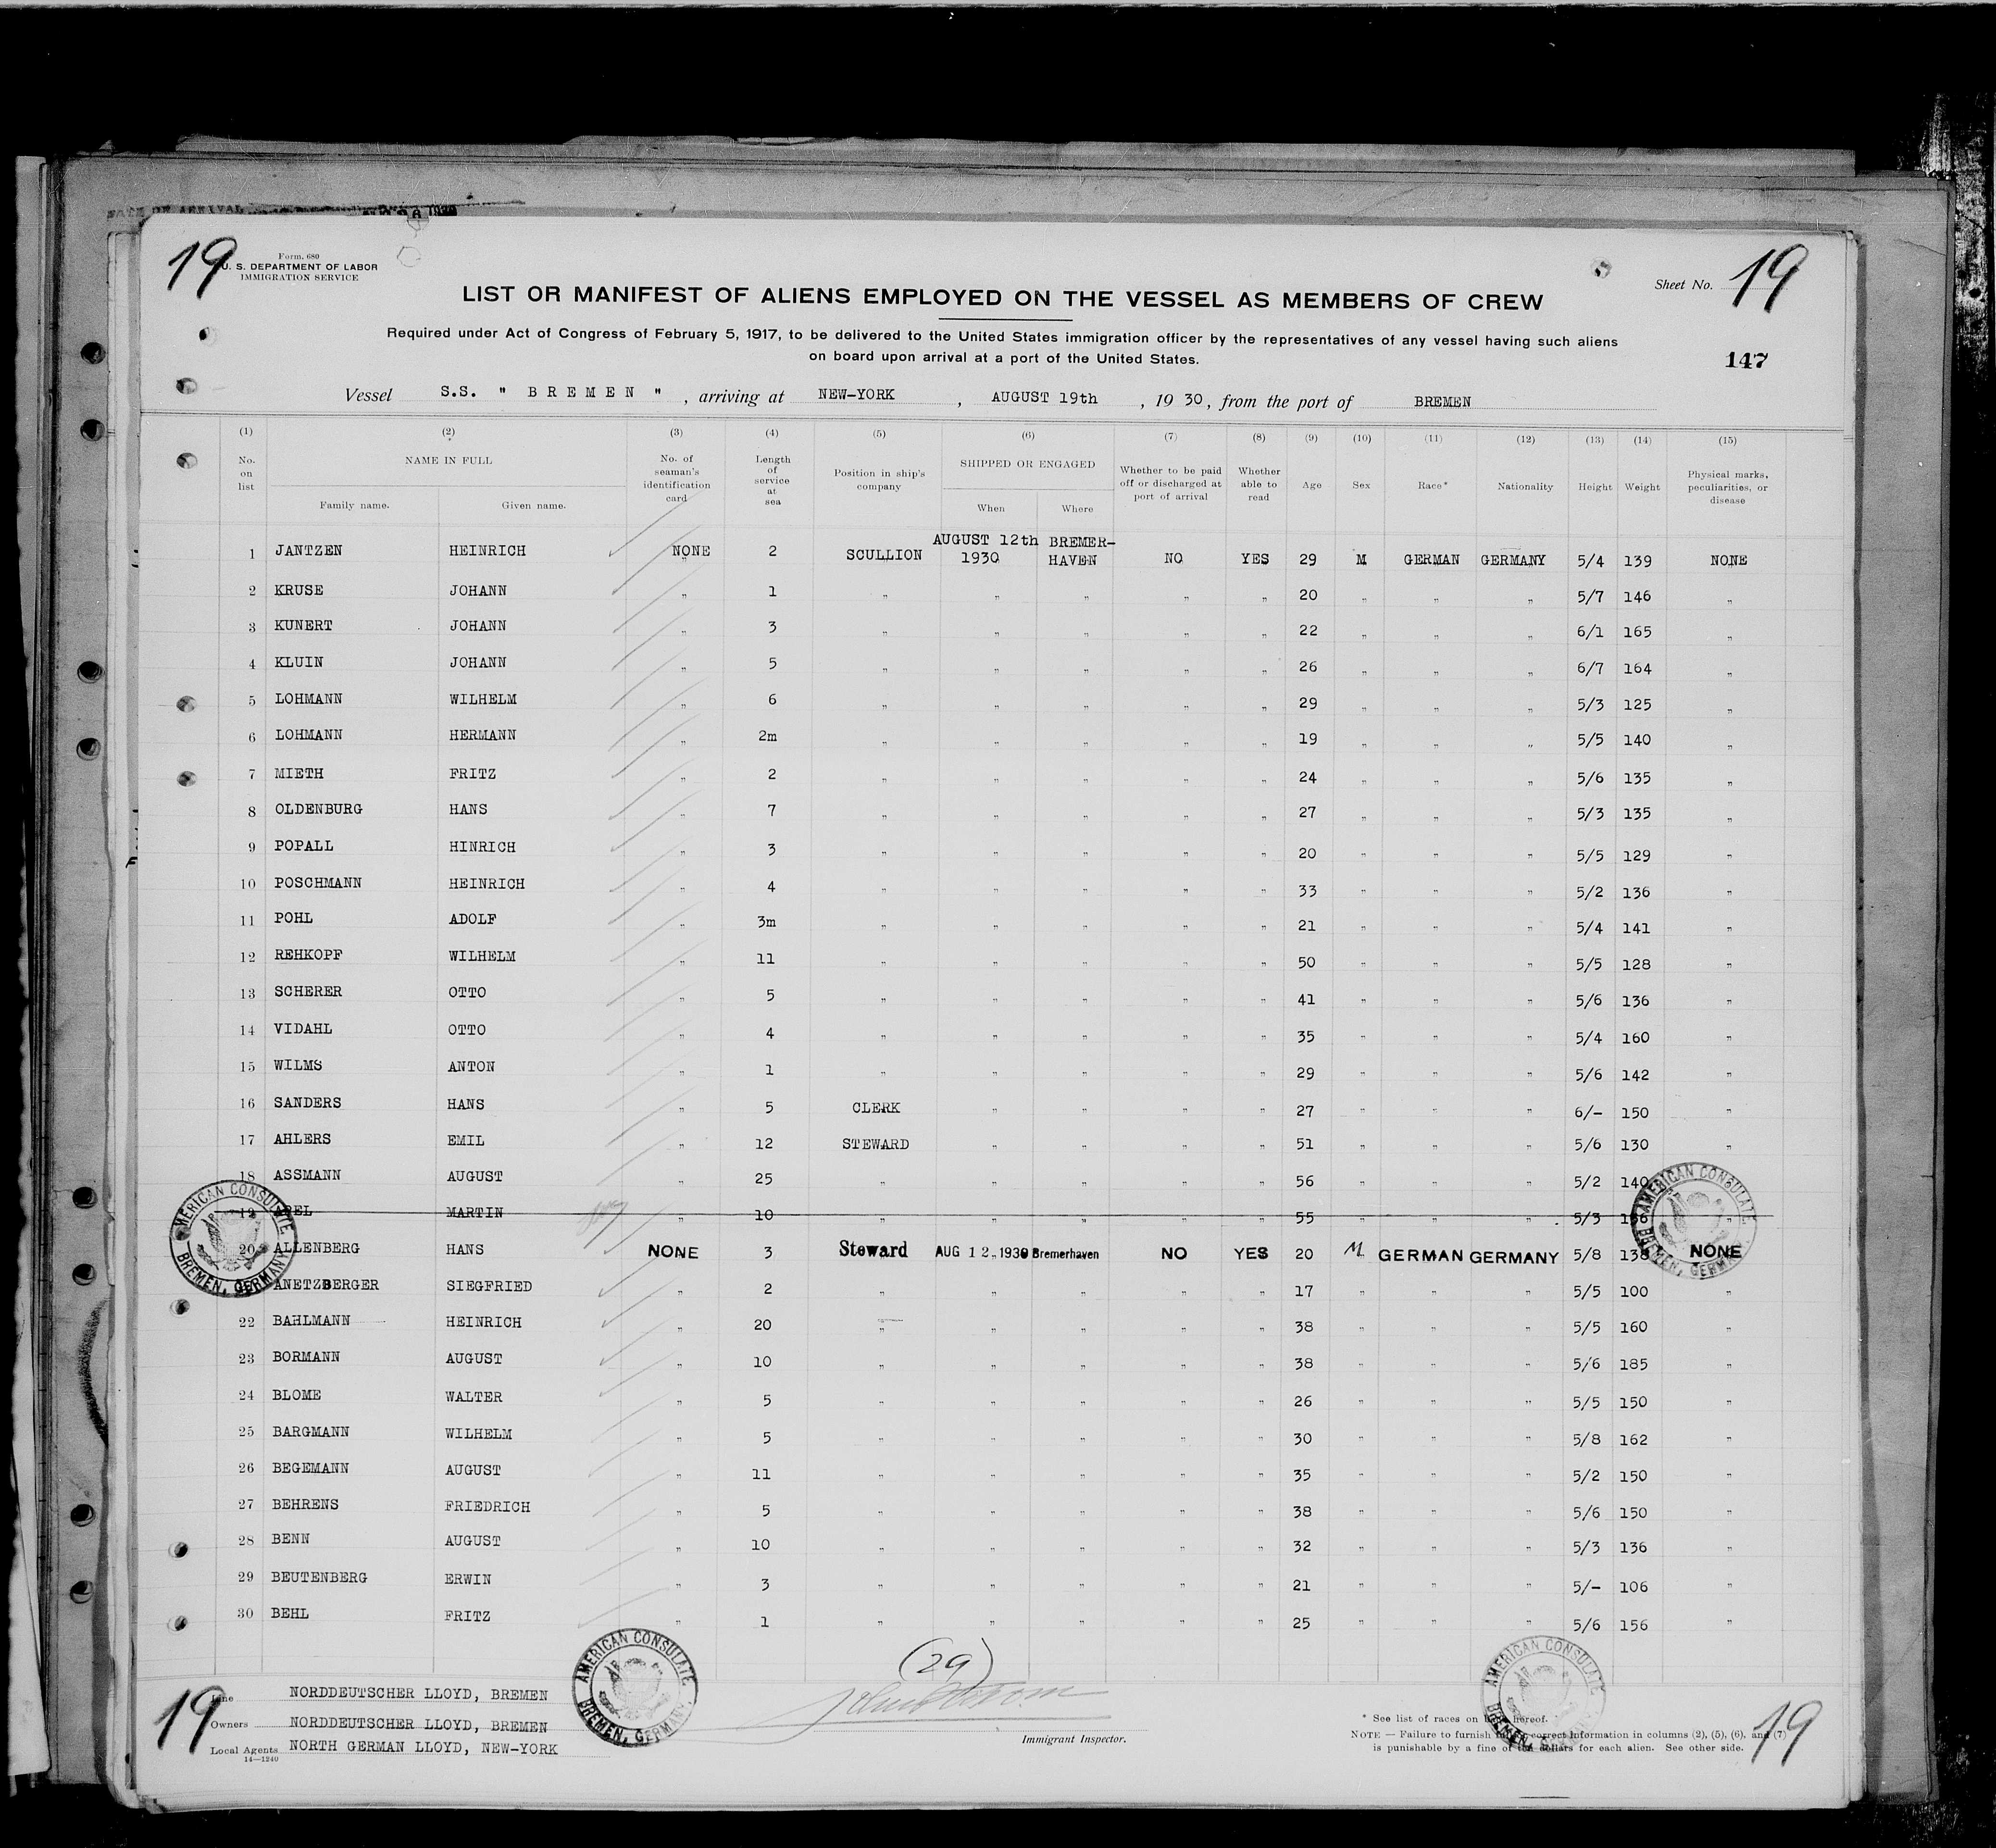 19
Form. 680
U. S. DEPARTMENT OF LABOR
IMMIGRATION SERVICE
Sheet No. 19
LIST OR MANIFEST OF ALIENS EMPLOYED ON THE VESSEL AS MEMBERS OF CREW
Required under Act of Congress of February 5, 1917, to be delivered to the United States immigration officer by the representatives of any vessel having such aliens
on board upon arrival at a port of the United States.
147
Vessel S.S. " B R E M E N " , arriving at NEW-YORK , AUGUST 19th , 19 30, from the port of BREMEN
(1) (2) (3) (4) (5) (6) (7) (8) (9) (10) (11) (12) (13) (14) (15)
No. on list NAME IN FULL Family name. Given name. No. of seaman's identification card Length of service at sea Position in ship's company SHIPPED OR ENGAGED When Where Whether to be paid off or discharged at port of arrival Whether able to read Age Sex Race* Nationality Height Weight Physical marks, peculiarities, or disease
1 JANTZEN HEINRICH NONE 2 SCULLION AUGUST 12th 1930 BREMER-HAVEN NO YES 29 M GERMAN GERMANY 5/4 139 NONE
2 KRUSE JOHANN " 1 " " " " " 20 " " " 5/7 146 "
3 KUNERT JOHANN " 3 " " " " " 22 " " " 6/1 165 "
4 KLUIN JOHANN " 5 " " " " " 26 " " " 6/7 164 "
5 LOHMANN WILHELM " 6 " " " " " 29 " " " 5/3 125 "
6 LOHMANN HERMANN " 2m " " " " " 19 " " " 5/5 140 "
7 MIETH FRITZ " 2 " " " " " 24 " " " 5/6 135 "
8 OLDENBURG HANS " 7 " " " " " 27 " " " 5/3 135 "
9 POPALL HINRICH " 3 " " " " " 20 " " " 5/5 129 "
10 POSCHMANN HEINRICH " 4 " " " " " 33 " " " 5/2 136 "
11 POHL ADOLF " 3m " " " " " 21 " " " 5/4 141 "
12 REHKOPF WILHELM " 11 " " " " " 50 " " " 5/5 128 "
13 SCHERER OTTO " 5 " " " " " 41 " " " 5/6 136 "
14 VIDAHL OTTO " 4 " " " " " 35 " " " 5/4 160 "
15 WILMS ANTON " 1 " " " " " 29 " " " 5/6 142 "
16 SANDERS HANS " 5 CLERK " " " " 27 " " " 6/- 150 "
17 AHLERS EMIL " 12 STEWARD " " " " 51 " " " 5/6 130 "
18 ASSMANN AUGUST " 25 " " " " " 56 " " " 5/2 140
19 MARTIN " 10 " " " " " 55 " " " 5/3 "
20 ALLENBERG HANS NONE 3 Steward AUG 12.1930 Bremerhaven NO YES 20 M GERMAN GERMANY 5/8 138 NONE
ANETZBERGER SIEGFRIED " 2 " " " " " 17 " " " 5/5 100 "
22 BAHLMANN HEINRICH " 20 " " " " " 38 " " " 5/5 160 "
23 BORMANN AUGUST " 10 " " " " " 38 " " " 5/6 185 "
24 BLOME WALTER " 5 " " " " " 26 " " " 5/5 150 "
25 BARGMANN WILHELM " 5 " " " " " 30 " " " 5/8 162 "
26 BEGEMANN AUGUST " 11 " " " " " 35 " " " 5/2 150 "
27 BEHRENS FRIEDRICH " 5 " " " " " 38 " " " 5/6 150 "
28 BENN AUGUST " 10 " " " " " 32 " " " 5/3 136 "
29 BEUTENBERG ERWIN " 3 " " " " " 21 " " " 5/- 106 "
30 BEHL FRITZ " 1 " " " " " 25 " " " 5/6 156 "
AMERICAN CONSULATE BREMEN, GERMANY
AMERICAN CONSULATE BREMEN, GERMANY
AMERICAN CONSULATE BREMEN, GERMANY
AMERICAN CONSULATE BREMEN, GERMANY
(29)
19
Line NORDDEUTSCHER LLOYD, BREMEN
Owners NORDDEUTSCHER LLOYD, BREMEN
Local Agents NORTH GERMAN LLOYD, NEW-YORK
14—1240
Immigrant Inspector.
* See list of races on back hereof.
NOTE — Failure to furnish full or correct information in columns (2), (5), (6), and (7)
is punishable by a fine of ten dollars for each alien. See other side.
19